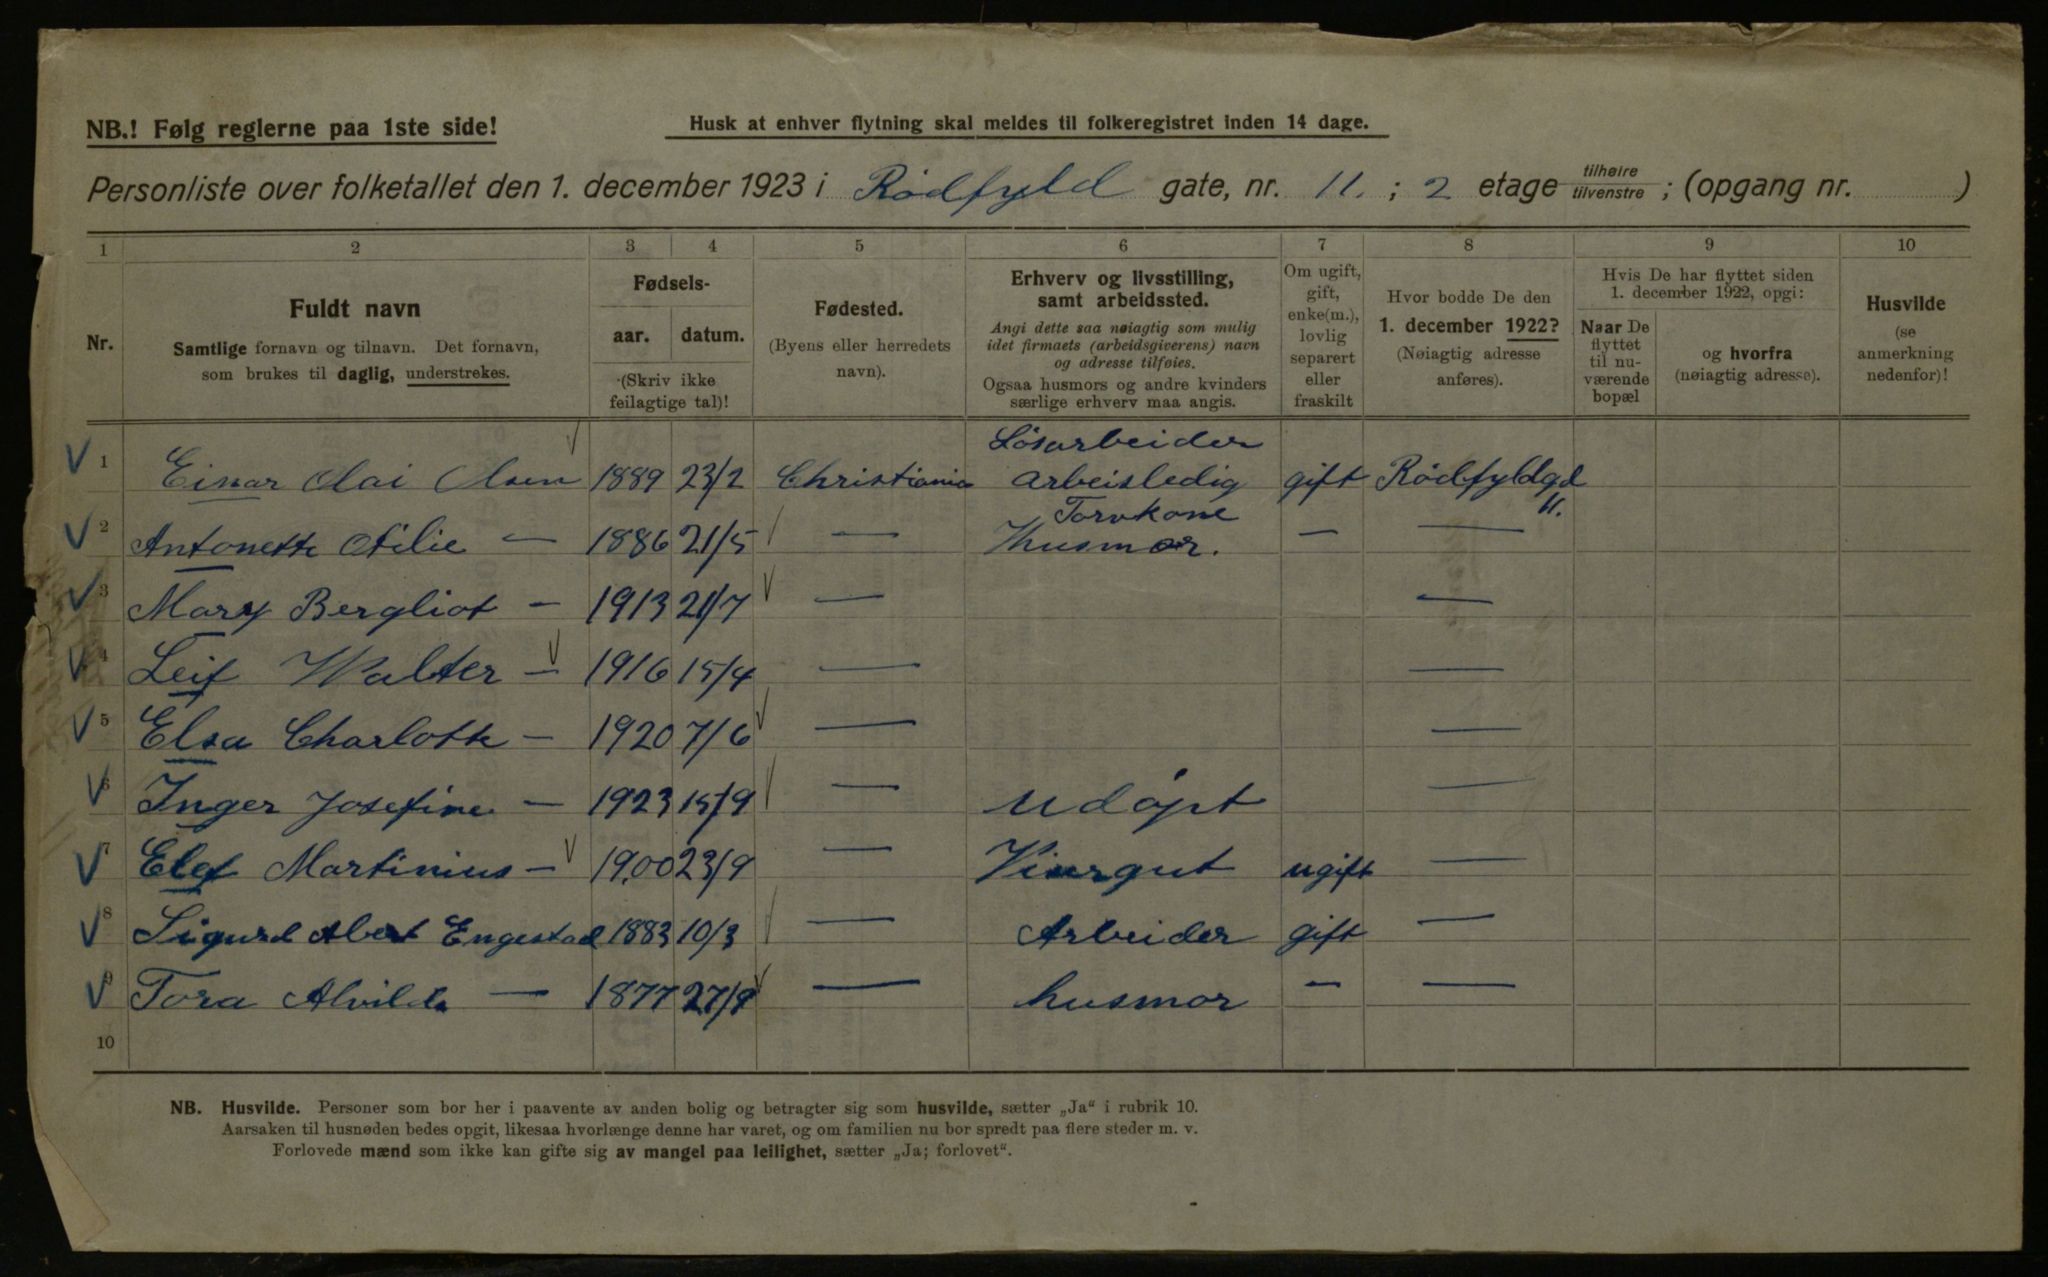 NB.! Følg reglerne paa 1ste side!
Husk at enhver flytning skal meldes til folkeregistret inden 14 dage.
Personliste over folketallet den 1. december 1923 i Rødfyld gate, nr. 11. ; 2 etage tilhøire tilvenstre ; (opgang nr. )
1 2 3 4 5 6 7 8 9 10
Nr.
Fuldt navn
Samtlige fornavn og tilnavn. Det fornavn,
som brukes til daglig, understrekes.
Fødsels-
aar. datum.
(Skriv ikke
feilagtige tal)!
Fødested.
(Byens eller herredets
navn).
Erhverv og livsstilling,
samt arbeidssted.
Angi dette saa nøiagtig som mulig
idet firmaets (arbeidsgiverens) navn
og adresse tilføies.
Ogsaa husmors og andre kvinders
særlige erhverv maa angis.
Om ugift,
gift,
enke(m.),
lovlig
separert
eller
fraskilt
Hvor bodde De den
1. december 1922?
(Nøiagtig adresse
anføres).
Hvis De har flyttet siden
1. december 1922, opgi:
Naar De
flyttet
til nu-
værende
bopæl
og hvorfra
(nøiagtig adresse).
Husvilde
(se
anmerkning
nedenfor)!
Løsarbeider
V 1 Einar Olai Olsen 1889 23/2 Christiania Arbeisledig gift Rødfyldgd
11.
Torvkone
V 2 Antonette — 1886 21/5 — Husmor. — —
V 3 Mary Bergliot — 1913 21/7 — —
V 4 Leif Walter — 1916 15/4 — —
V 5 Elsa Charlotte — 1920 7/6 — —
V 6 Inger Josefine — 1923 15/9 — udøpt —
V 7 Martinius — 1900 23/9 — Visergut ugift —
V 8 Sigurd Abert Engestad 1883 10/3 — Arbeider gift —
V 9 Tora Alvilde — 1877 27/9 — husmor — —
10
NB. Husvilde. Personer som bor her i paavente av anden bolig og betragter sig som husvilde, sætter „Ja“ i rubrik 10.
Aarsaken til husnøden bedes opgit, likesaa hvorlænge denne har varet, og om familien nu bor spredt paa flere steder m. v.
Forlovede mænd som ikke kan gifte sig av mangel paa leilighet, sætter „Ja; forlovet“.